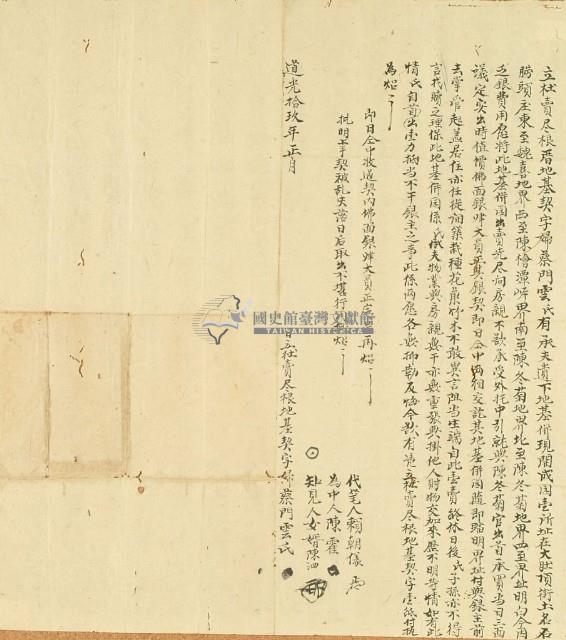 立杜賣尽根厝地基契字婦蔡門雲氏有承夫遺下地基併現開成園壹所址在大肚頂街土名
勝頭庄東至魏喜地界西至陳儈界南至陳冬菊地界北至陳冬菊地界四至界址明白今因
乏銀費用愿將此地基併園出賣先尽问房親不欲承受外托中引就與陳冬菊官出首承買当日三面
議定实出時值價佛面銀肆大員正其銀契即日仝中两相交訖其地基併園隨即踏明界址付與銀主前
去掌管起盖居住亦任從開築栽種花菓竹木不敢異言阻当生端自此壹賣終休日後氏子孫亦不得
言找贖之理保此地基併園係氏承夫物業與房親無干亦無重張典掛他人財物交加來歷不明等情如有此
情氏自首出壹力抵当不干銀主之事此係两愿各無抑勒反悔今欲有憑立杜賣尽根地基契字壹紙付執
為炤
即日仝中收過契内佛面銀肆大員正完再炤
批明上手契被乱失落日后取出不堪行用炤
代笔人賴朝儀
為中人陳霍
知見人女婿陳泗
道光拾玖年正月 日立杜賣尽根地基契字婦蔡門雲氏
國史館臺灣文獻館
TAIWAN HISTORICA